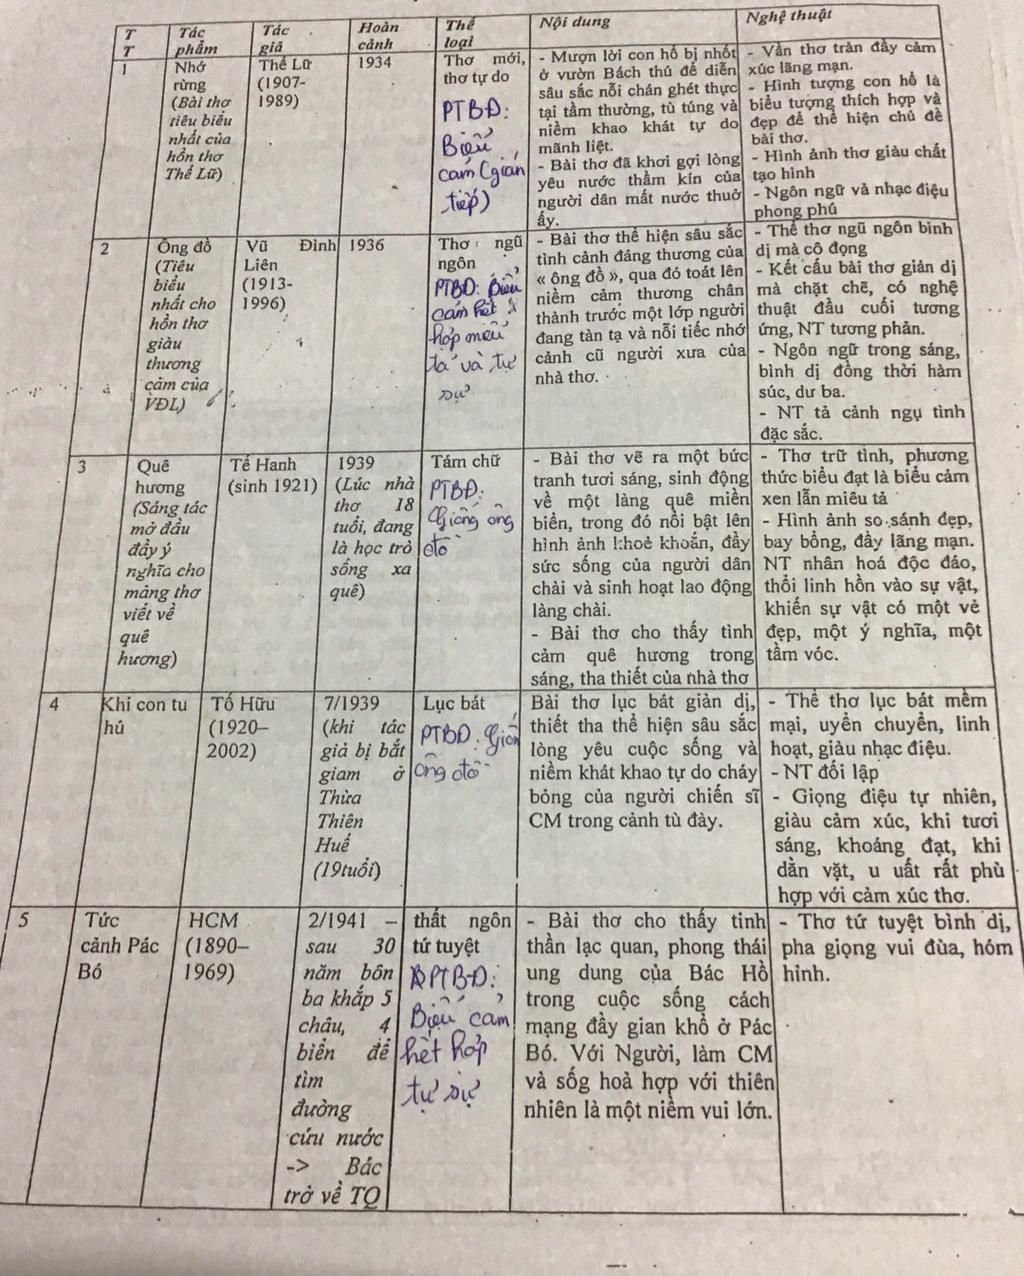 T T
Tác phẩm
Tác giả
Hoàn cảnh
Thể loại
Nội dung
Nghệ thuật
1
Nhớ
rừng
(Bài thơ
tiêu biểu
nhất của
hồn thơ
Thế Lữ)
Thế Lữ
(1907-
1989)
1934
Thơ mới,
thơ tự do
PTBĐ:
Biểu
cảm (gián
tiếp)
- Mượn lời con hổ bị nhốt
ở vườn Bách thú để diễn
sâu sắc nỗi chán ghét thực
tại tầm thường, tù túng và
niềm khao khát tự do
mãnh liệt.
- Bài thơ đã khơi gợi lòng
yêu nước thầm kín của
người dân mất nước thuở
ấy.
- Vần thơ tràn đầy cảm
xúc lãng mạn.
- Hình tượng con hổ là
biểu tượng thích hợp và
đẹp để thể hiện chủ đề
bài thơ.
- Hình ảnh thơ giàu chất
tạo hình
- Ngôn ngữ và nhạc điệu
phong phú
2
Ông đồ
(Tiêu
biểu
nhất cho
hồn thơ
giàu
thương
cảm của
VĐL)
Vũ Đình
Liên
(1913-
1996)
1936
Thơ ngũ
ngôn
PTBĐ: Biểu
cảm kết
hợp miêu
tả và tự
sự
- Bài thơ thể hiện sâu sắc
tình cảnh đáng thương của
« ông đồ », qua đó toát lên
niềm cảm thương chân
thành trước một lớp người
đang tàn tạ và nỗi tiếc nhớ
cảnh cũ người xưa của
nhà thơ.
- Thể thơ ngũ ngôn bình
dị mà cô đọng
- Kết cấu bài thơ giản dị
mà chặt chẽ, có nghệ
thuật đầu cuối tương
ứng, NT tương phản.
- Ngôn ngữ trong sáng,
bình dị đồng thời hàm
súc, dư ba.
- NT tả cảnh ngụ tình
đặc sắc.
3
Quê
hương
(Sáng tác
mở đầu
đầy ý
nghĩa cho
mảng thơ
viết về
quê
hương)
Tế Hanh
(sinh 1921)
1939
(Lúc nhà
thơ 18
tuổi, đang
là học trò
sống xa
quê)
Tám chữ
PTBĐ:
Giống ông
đồ
- Bài thơ vẽ ra một bức
tranh tươi sáng, sinh động
về một làng quê miền
biển, trong đó nổi bật lên
hình ảnh khoẻ khoắn, đầy
sức sống của người dân
chài và sinh hoạt lao động
làng chài.
- Bài thơ cho thấy tình
cảm quê hương trong
sáng, tha thiết của nhà thơ
- Thơ trữ tình, phương
thức biểu đạt là biểu cảm
xen lẫn miêu tả
- Hình ảnh so sánh đẹp,
bay bổng, đầy lãng mạn.
NT nhân hoá độc đáo,
thổi linh hồn vào sự vật,
khiến sự vật có một vẻ
đẹp, một ý nghĩa, một
tầm vóc.
4
Khi con tu
hú
Tố Hữu
(1920–
2002)
7/1939
(khi tác
giả bị bắt
giam ở
Thừa
Thiên
Huế
(19tuổi)
Lục bát
PTBĐ: Giống
ông đồ
Bài thơ lục bát giản dị,
thiết tha thể hiện sâu sắc
lòng yêu cuộc sống và
niềm khát khao tự do cháy
bỏng của người chiến sĩ
CM trong cảnh tù đày.
- Thể thơ lục bát mềm
mại, uyển chuyển, linh
hoạt, giàu nhạc điệu.
- NT đối lập
- Giọng điệu tự nhiên,
giàu cảm xúc, khi tươi
sáng, khoáng đạt, khi
dằn vặt, u uất rất phù
hợp với cảm xúc thơ.
5
Tức
cảnh Pác
Bó
HCM
(1890–
1969)
2/1941 –
sau 30
năm bôn
ba khắp 5
châu, 4
biển để
tìm
đường
cứu nước
-> Bác
trở về TQ
thất ngôn
tứ tuyệt
PTBĐ:
Biểu cảm
kết hợp
tự sự
- Bài thơ cho thấy tinh
thần lạc quan, phong thái
ung dung của Bác Hồ
trong cuộc sống cách
mạng đầy gian khổ ở Pác
Bó. Với Người, làm CM
và sốg hoà hợp với thiên
nhiên là một niềm vui lớn.
- Thơ tứ tuyệt bình dị,
pha giọng vui đùa, hóm
hỉnh.